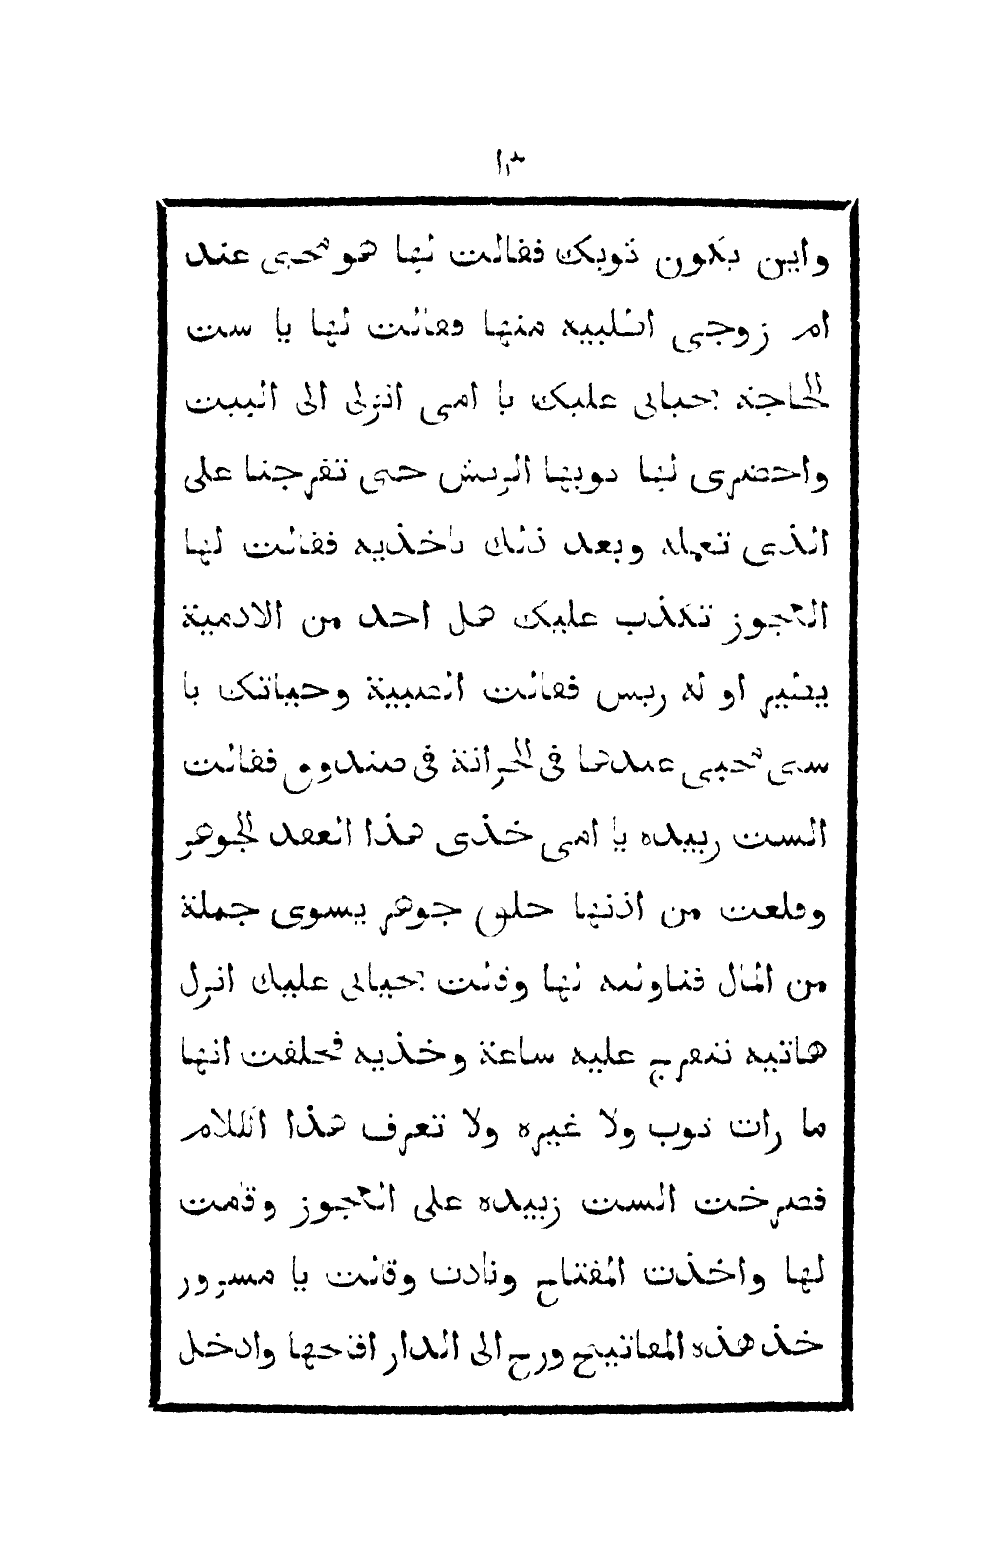 ١٣
واين يكون ثوبك فقالت لها هو مخبى عند
ام زوجى اطلبيه منها فقالت لها يا ست
الحاجة بحياتى عليك يا امى انزلى الى البيت
واحضرى لها ثوبها الريش حتى تفرجنا على
الذى تعمله وبعد ذلك تاخذيه فقالت لها
العجوز تكذب عليك هل احد من الادمية
يطير او له ريش فقالت الصبية وحياتك يا
ستى مخبى عندها فى الخزانة فى صندوق فقالت
الست زبيده يا امى خذى هذا العقد الجوهر
وقلعت من اذنها حلق جوهر يسوى جملة
من المال فناولته لها وقالت بحياتى عليك انزل
هاتيه نتفرج عليه ساعة وخذيه فحلفت انها
ما رات ثوب ولا غيره ولا تعرف هذا الكلام
فصرخت الست زبيده على العجوز وقامت
لها واخذت المفتاح ونادت وقالت يا مسرور
خذ هذه المفاتيح ورح الى الدار افتحها وادخل